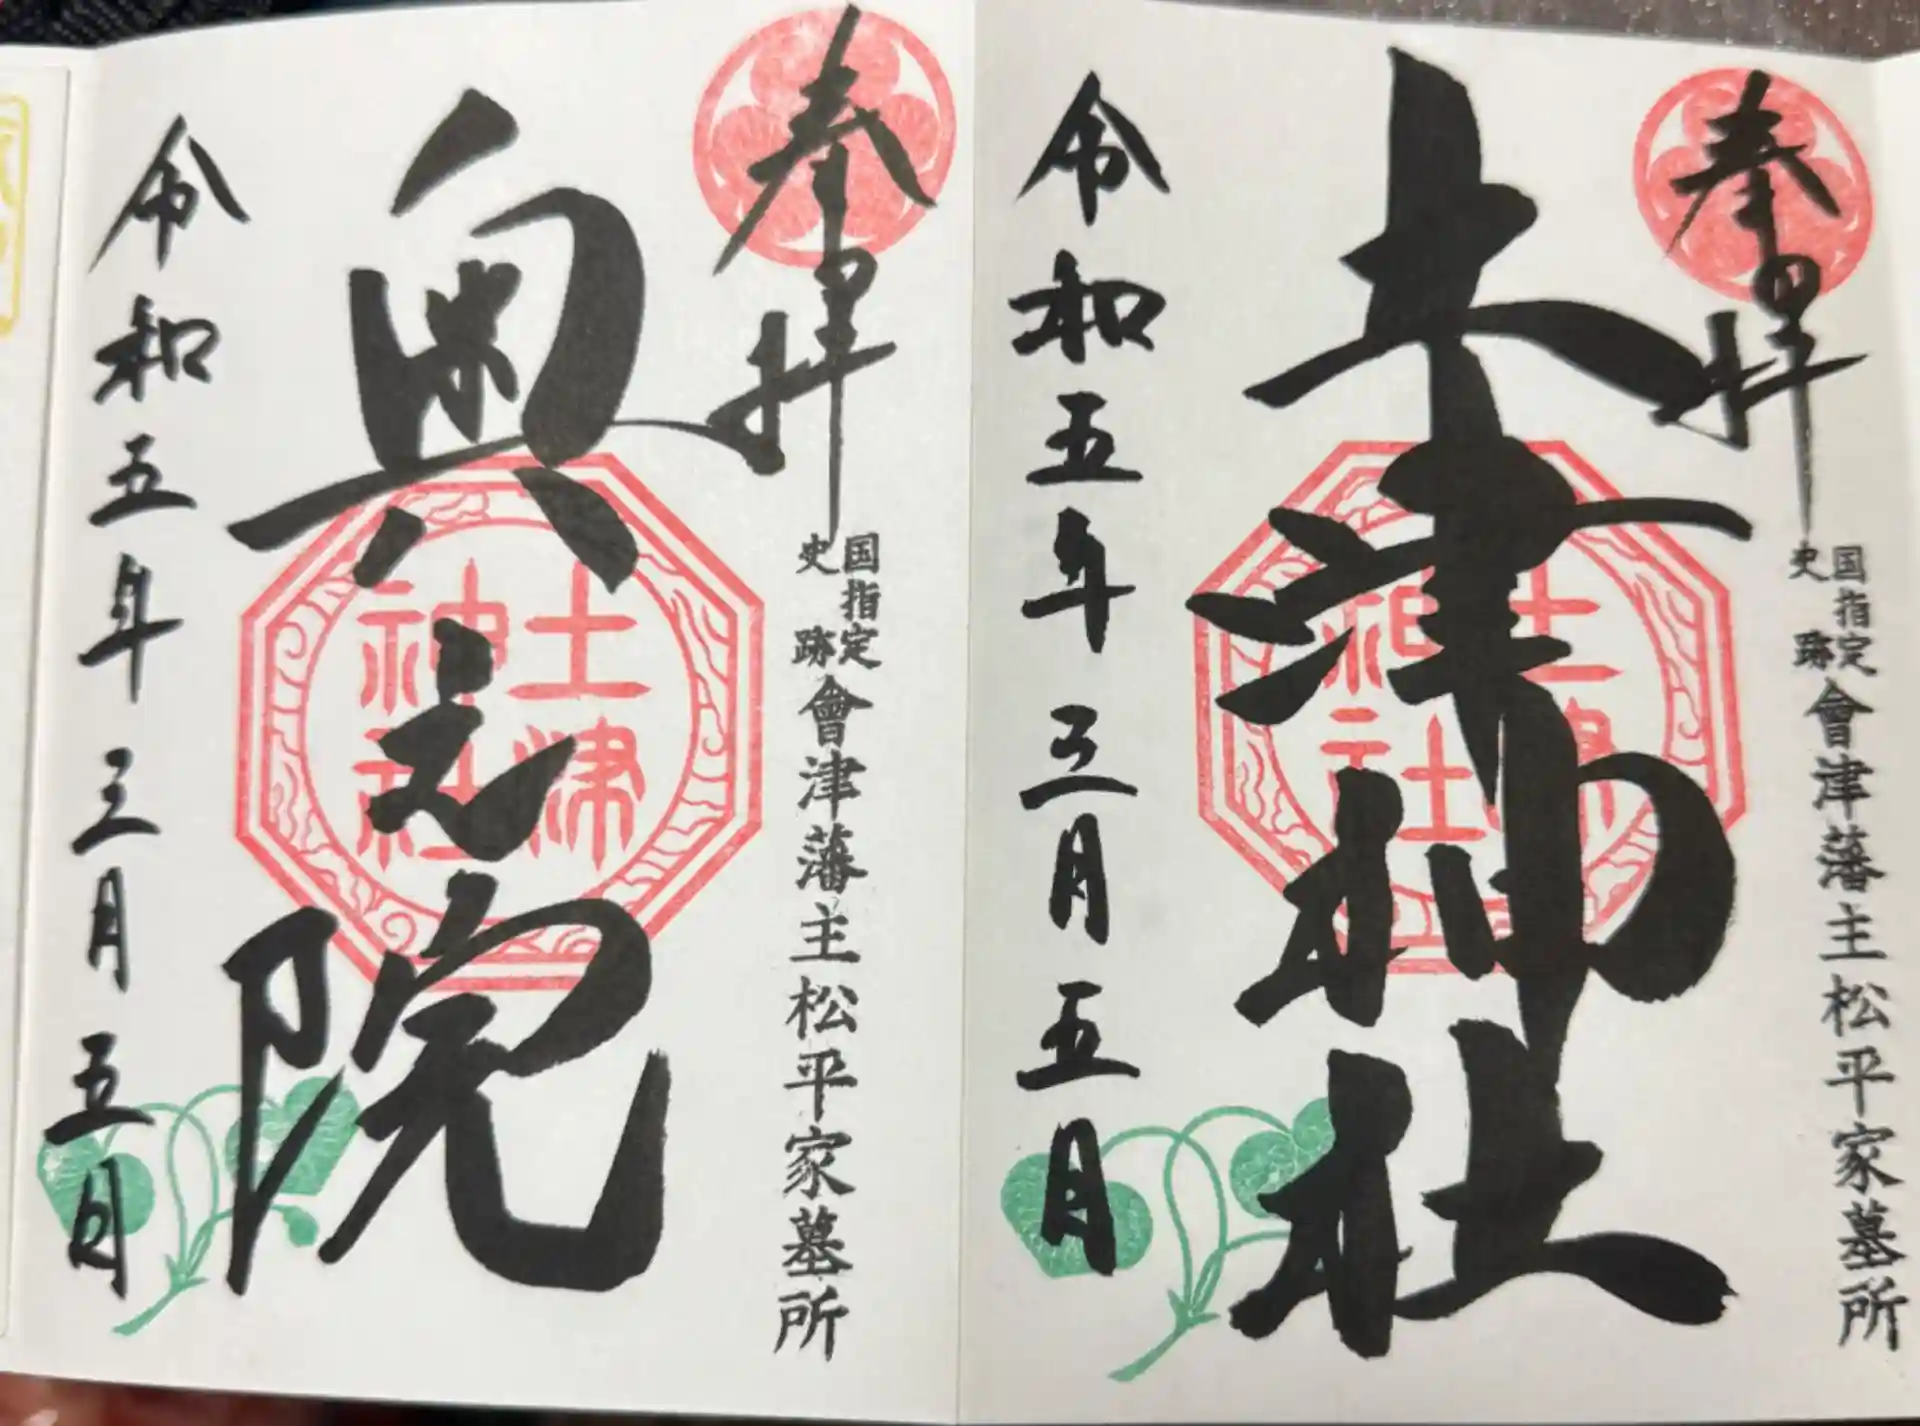 奉拝
国指定
史跡
會津藩主松平家墓所
土津神社
土津
神社
令和五年三月五月
奉拝
国指定
史跡
會津藩主松平家墓所
奥之院
土津
神社
令和五年三月五日